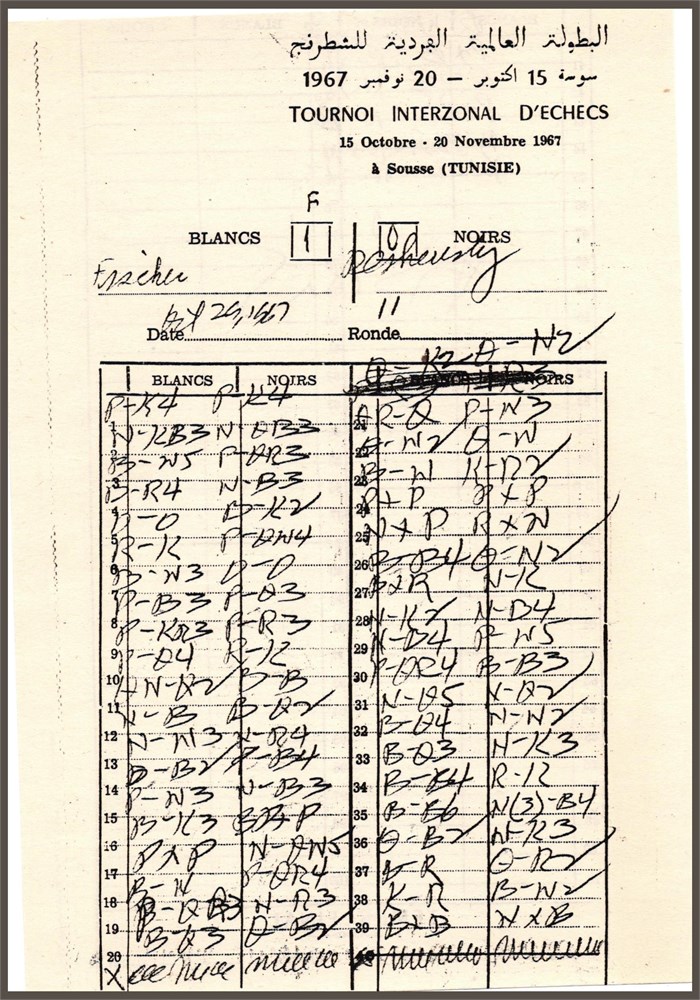 البطولة العالمية الفردية للشطرنج
سوسة 15 اكتوبر — 20 نوفمبر 1967
TOURNOI INTERZONAL D'ECHECS
15 Octobre - 20 Novembre 1967
à Sousse (TUNISIE)
F
BLANCS 1 0 NOIRS
Fischer Reshevsky
Date Oct 29, 1967 Ronde 11
Q-K2 Q-N2
BLANCS NOIRS BLANCS NOIRS
P-K4 P-K4
1 N-KB3 N-QB3
2 B-N5 P-QR3
3 B-R4 N-B3
4 O-O B-K2
5 R-K P-QN4
6 B-N3 O-O
7 P-B3 P-Q3
8 P-KR3 P-R3
9 P-Q4 R-K
10 QN-Q2 B-B
11 N-B B-Q2
12 N-N3 N-R4
13 B-B2 P-B4
14 P-N3 N-B3
15 B-K3 BP×P
16 P×P N-QN5
17 B-N P-QR4
18 N-R3
19 B-Q3 Q-B2
20
X
QR-Q P-N3
21 Q-N2 Q-N
22 B-N K-R2
23 P×P P×P
24 N×P R×N
25 B-B4 Q-N2
26 B×R N-K
27 N-K2 N-B4
28 N-B4 P-N5
29 P-QR4 B-B3
30 N-Q5 N-Q2
31 B-Q4 N-N2
32 B-Q3 N-K3
33 B-K4 R-K
34 B-B6 N(3)-B4
35 Q-B2 N-K3
36 Q-R2
37 K-R B-N2
38 B×B N×B
39
40